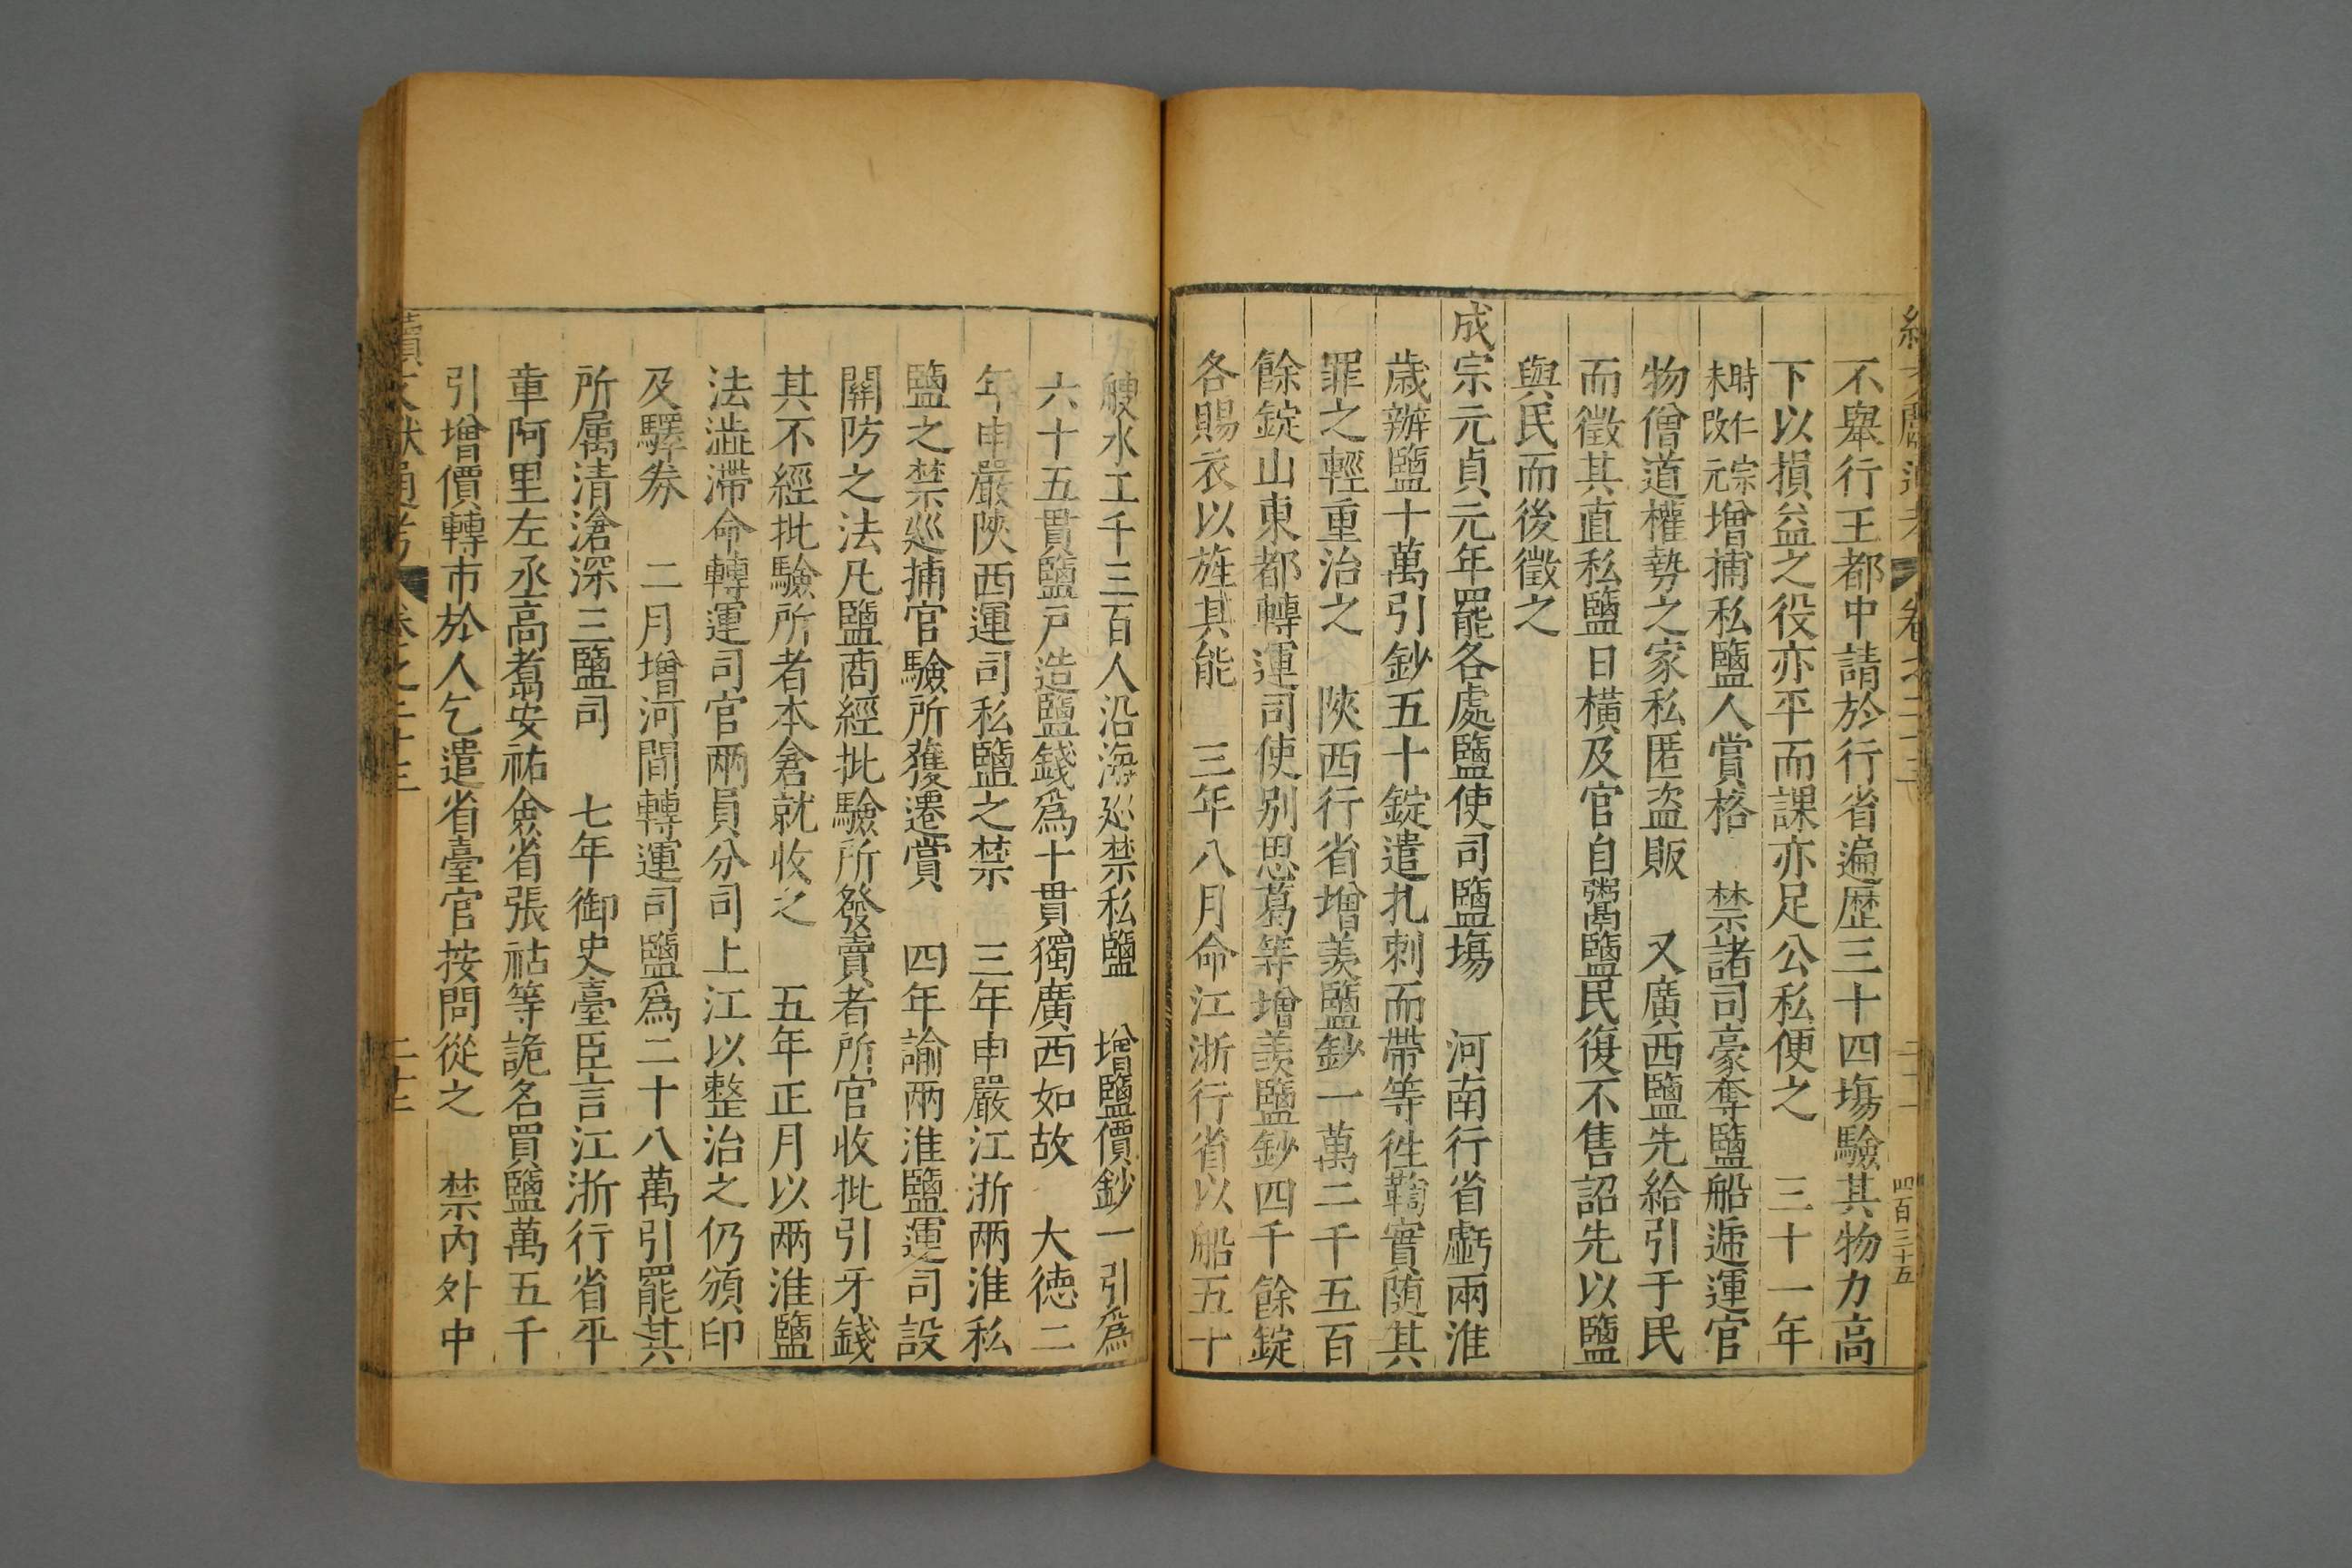 不舉行王都中請於行省遍歷三十四塲驗其物力高
下以損益之役亦平而課亦足公私便之　三十一年
時仁宗未改元增捕私鹽人賞格　禁諸司豪奪鹽船遞運官
物僧道權勢之家私匿盗販　又廣西鹽先給引于民
而徵其直私鹽日橫及官自鬻鹽民復不售詔先以鹽
與民而後徵之
成宗元貞元年罷各處鹽使司鹽塲　河南行省虧兩淮
歲辦鹽十萬引鈔五十錠遣扎剌而帶等徃鞫實隨其
罪之輕重治之　陜西行省增羨鹽鈔一萬二千五百
餘錠山東都轉運司使别思葛等增羨鹽鈔四千餘錠
各賜衣以旌其能　三年八月命江浙行省以船五十
艘水工千三百人沿海廵禁私鹽　增鹽價鈔一引爲
六十五貫鹽戸造鹽錢爲十貫獨廣西如故　大德二
年申嚴陜西運司私鹽之禁　三年申嚴江浙兩淮私
鹽之禁巡捕官驗所獲遷賞　四年諭兩淮鹽運司設
關防之法凡鹽商經批驗所發賣者所官收批引牙錢
其不經批驗所者本倉就收之　五年正月以兩淮鹽
法澁滯命轉運司官兩員分司上江以整治之仍頒印
及驛券　二月增河間轉運司鹽爲二十八萬引罷其
所屬清滄深三鹽司　七年御史臺臣言江浙行省平
章阿里左丞高翥安祐僉省張祐等詭名買鹽萬五千
引增價轉市於人乞遣省臺官按問從之　禁內外中
續文獻通考　卷之二十三　二十二